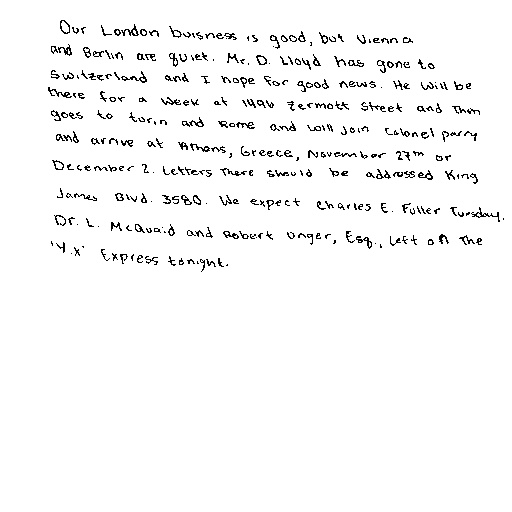 Our London buisness is good, but Vienna
and Berlin are quiet. Mr. D. Lloyd has gone to
Switzerland and I hope for good news. He will be
there for a week at 1496 Zermott Street and then
goes to turin and Rome and will join Colonel parry
and arrive at Athens, Greece, November 27th or
December 2. Letters there should be addressed King
James Blvd. 3580. We expect Charles E. Fuller Tuesday.
Dr. L. McQuaid and Robert Unger, Esq., left on the
'Y.X' Express tonight.